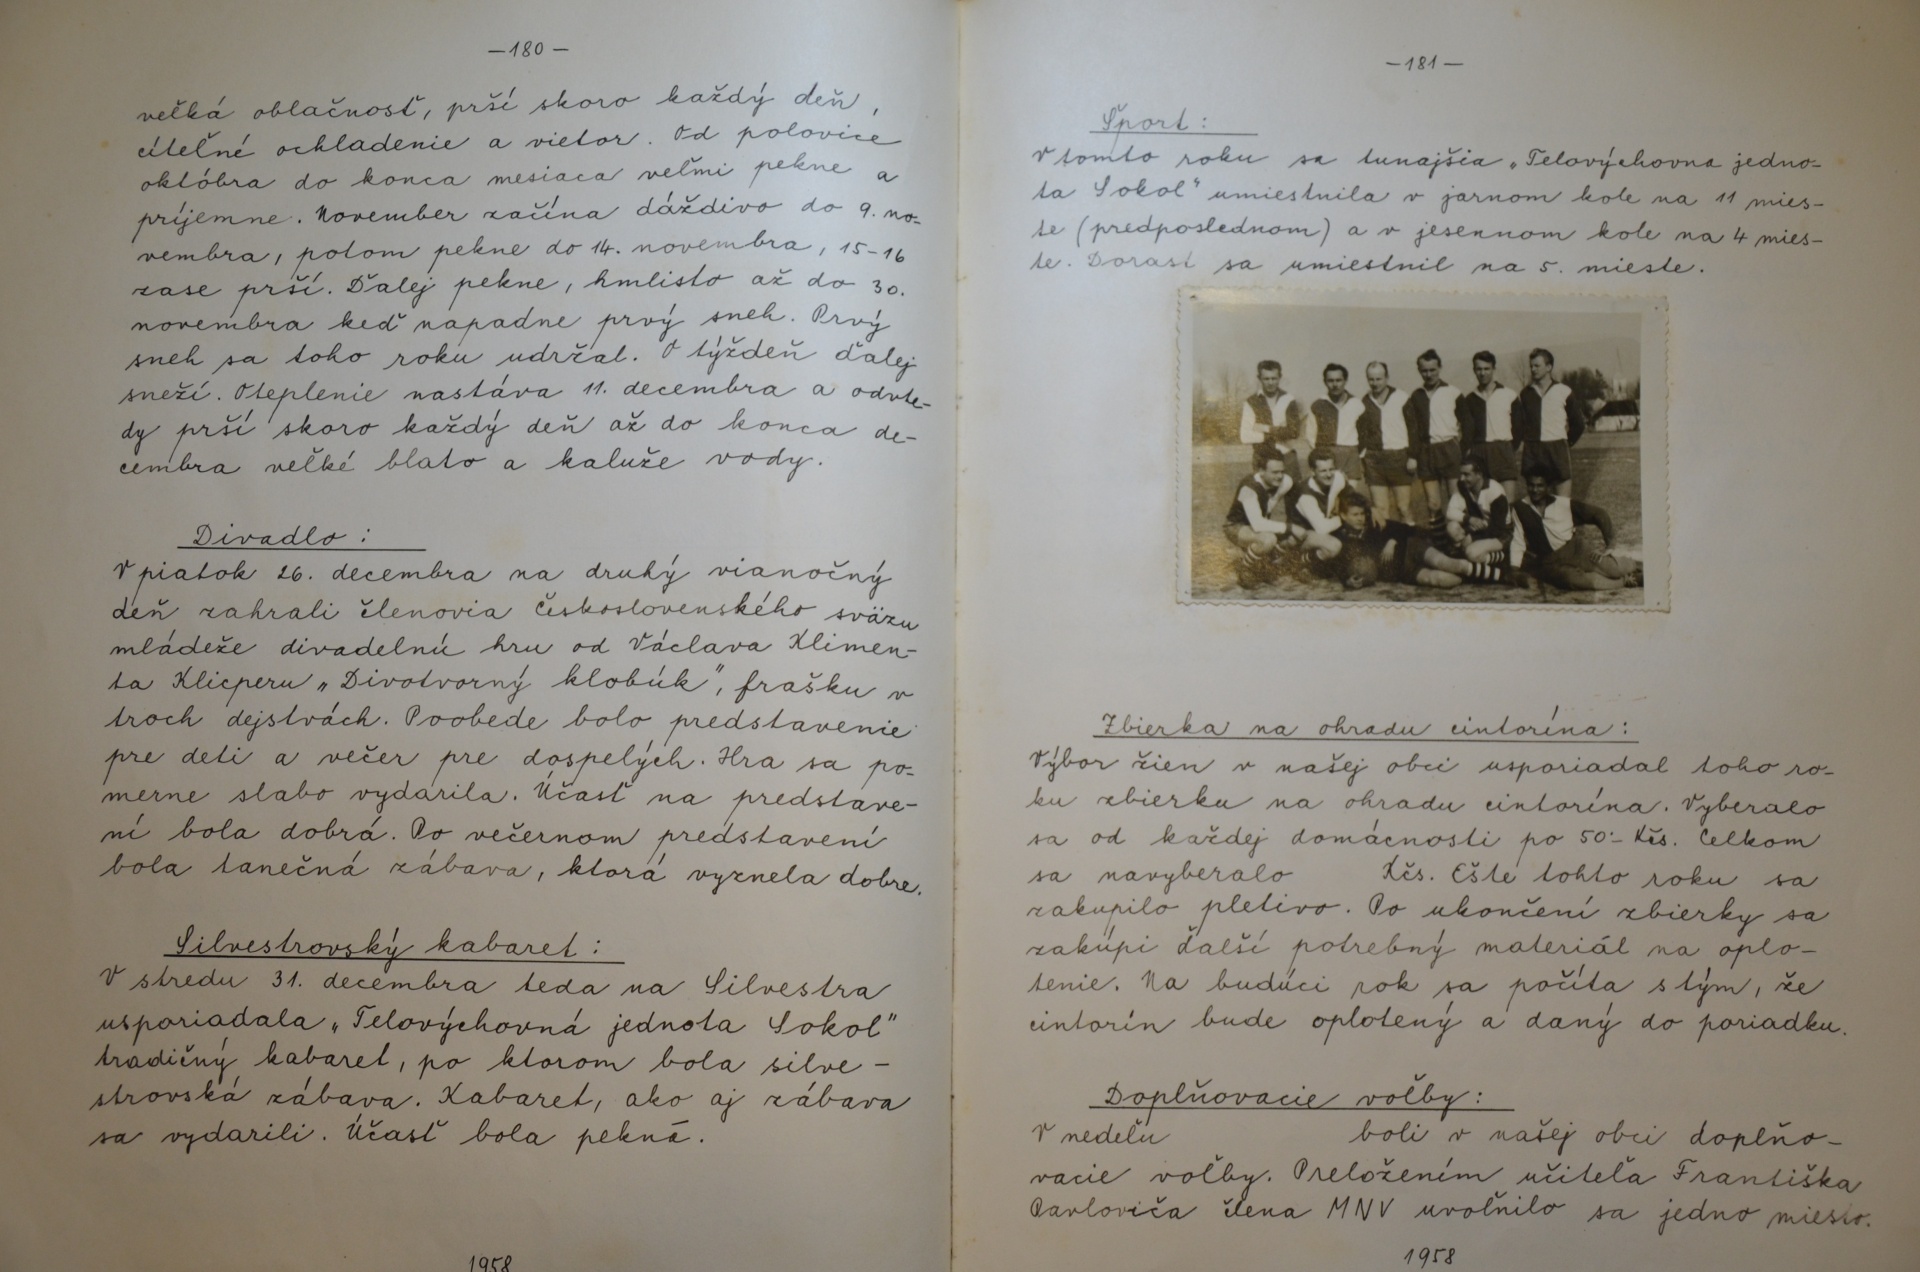 —180—
veľká oblačnosť, prší skoro každý deň,
citeľné ochladenie a vietor. Od polovice
októbra do konca mesiaca veľmi pekne a
príjemne. November začína dáždivo do 9. no-
vembra, potom pekne do 14. novembra, 15-16
zase prší. Ďalej pekne, hmlisto až do 30.
novembra keď napadne prvý sneh. Prvý
sneh sa toho roku udržal. O týždeň ďalej
sneží. Oteplenie nastáva 11. decembra a odvte-
dy prší skoro každý deň až do konca de-
cembra veľké blato a kaluže vody.
Divadlo:
V piatok 26. decembra na druhý vianočný
deň zahrali členovia Československého sväzu
mládeže divadelnú hru od Václava Klimen-
ta Klicperu „Divotvorný klobúk", frašku v
troch dejstvách. Poobede bolo predstavenie
pre deti a večer pre dospelých. Hra sa po-
merne slabo vydarila. Účasť na predstave-
ní bola dobrá. Po večernom predstavení
bola tanečná zábava, ktorá vyznela dobre.
Silvestrovský kabaret:
V stredu 31. decembra teda na Silvestra
usporiadala „Telovýchovná jednota Sokol"
tradičný kabaret, po ktorom bola silve-
strovská zábava. Kabaret, ako aj zábava
sa vydarili. Účasť bola pekná.
1958
—181—
Šport:
V tomto roku sa tunajšia „Telovýchovna jedno-
ta Sokol" umiestnila v jarnom kole na 11 mies-
te (predposlednom) a v jesennom kole na 4 mies-
te. Dorast sa umiestnil na 5. mieste.
Zbierka na ohradu cintorína:
Výbor žien v našej obci usporiadal toho ro-
ku zbierku na ohradu cintorína. Vyberalo
sa od každej domácnosti po 50·- Kčs. Celkom
sa navyberalo Kčs. Ešte tohto roku sa
zakupilo pletivo. Po ukončení zbierky sa
zakúpi ďalší potrebný materiál na oplo-
tenie. Na budúci rok sa počíta s tým, že
cintorín bude oplotený a daný do poriadku.
Doplňovacie voľby:
V nedeľu boli v našej obci doplňo-
vacie voľby. Preložením učiteľa Františka
Pavloviča člena MNV uvoľnilo sa jedno miesto.
1958